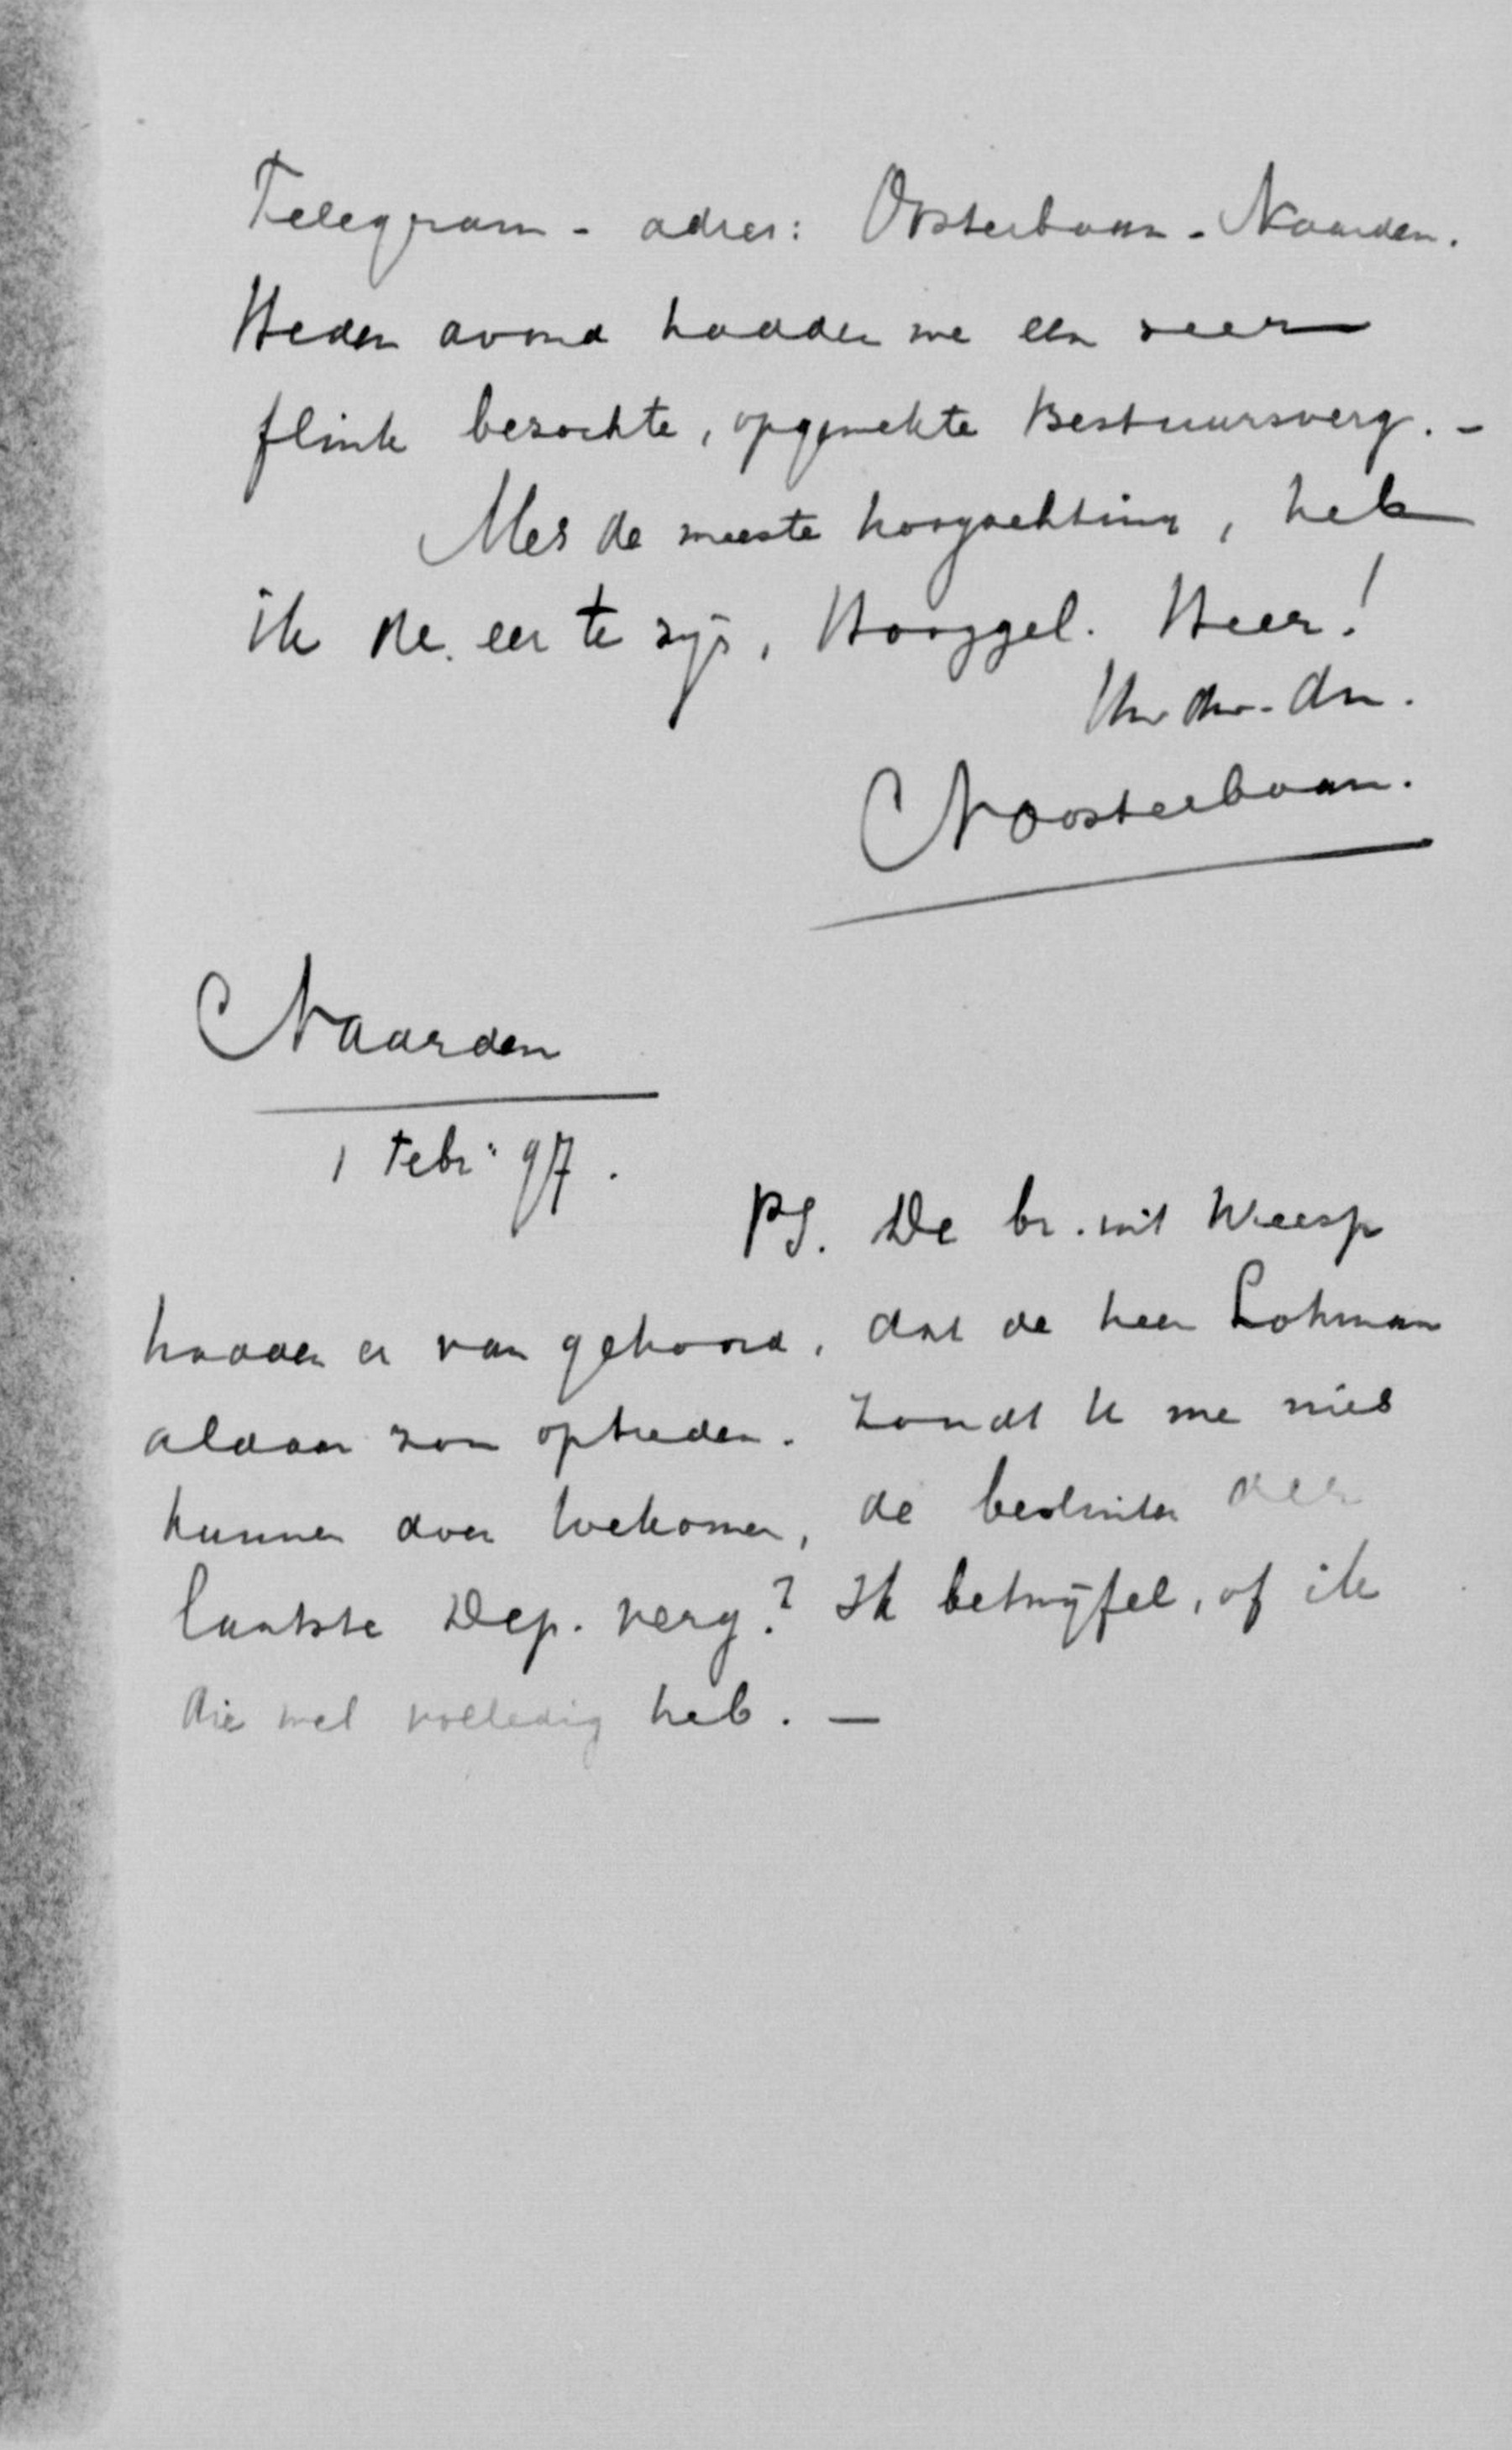 Telegram - adres: Oosterbaan - Naarden.
Heden avond hadden we een zeer
flink bezochte, opgewekte Bestuursverg. -
Met de meeste hoogachting, heb
ik de eer te zijn, Hooggel. Heer!
Uw dw. dn.
Noosterbaan.
Naarden
1 Febr: 97.
PS. De br. uit Weesp
hadden er van gehoord, dat de heer Lohman
aldaar zou optreden. Zoudt U me niet
kunnen doen toekomen, de besluiten der
laatste Dep. verg? Ik betwijfel, of ik
die wel volledig heb. -